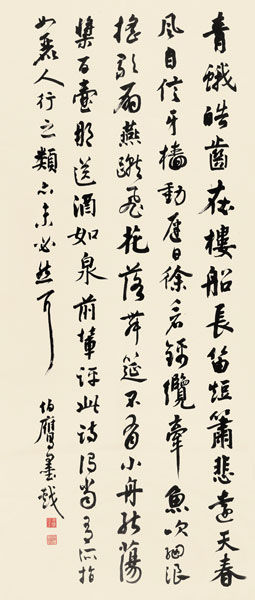 青蛾皓齒在樓船長笛短簫悲遠天春
風自信牙檣動遲日徐看錦纜牽魚吹細浪
搖歌扇燕蹴飛花落舞筵不有小舟能蕩
槳百壺那送酒如泉前輩評此詩當有所指
如麗人行之類亦未必然耳
伯鷹墨戲